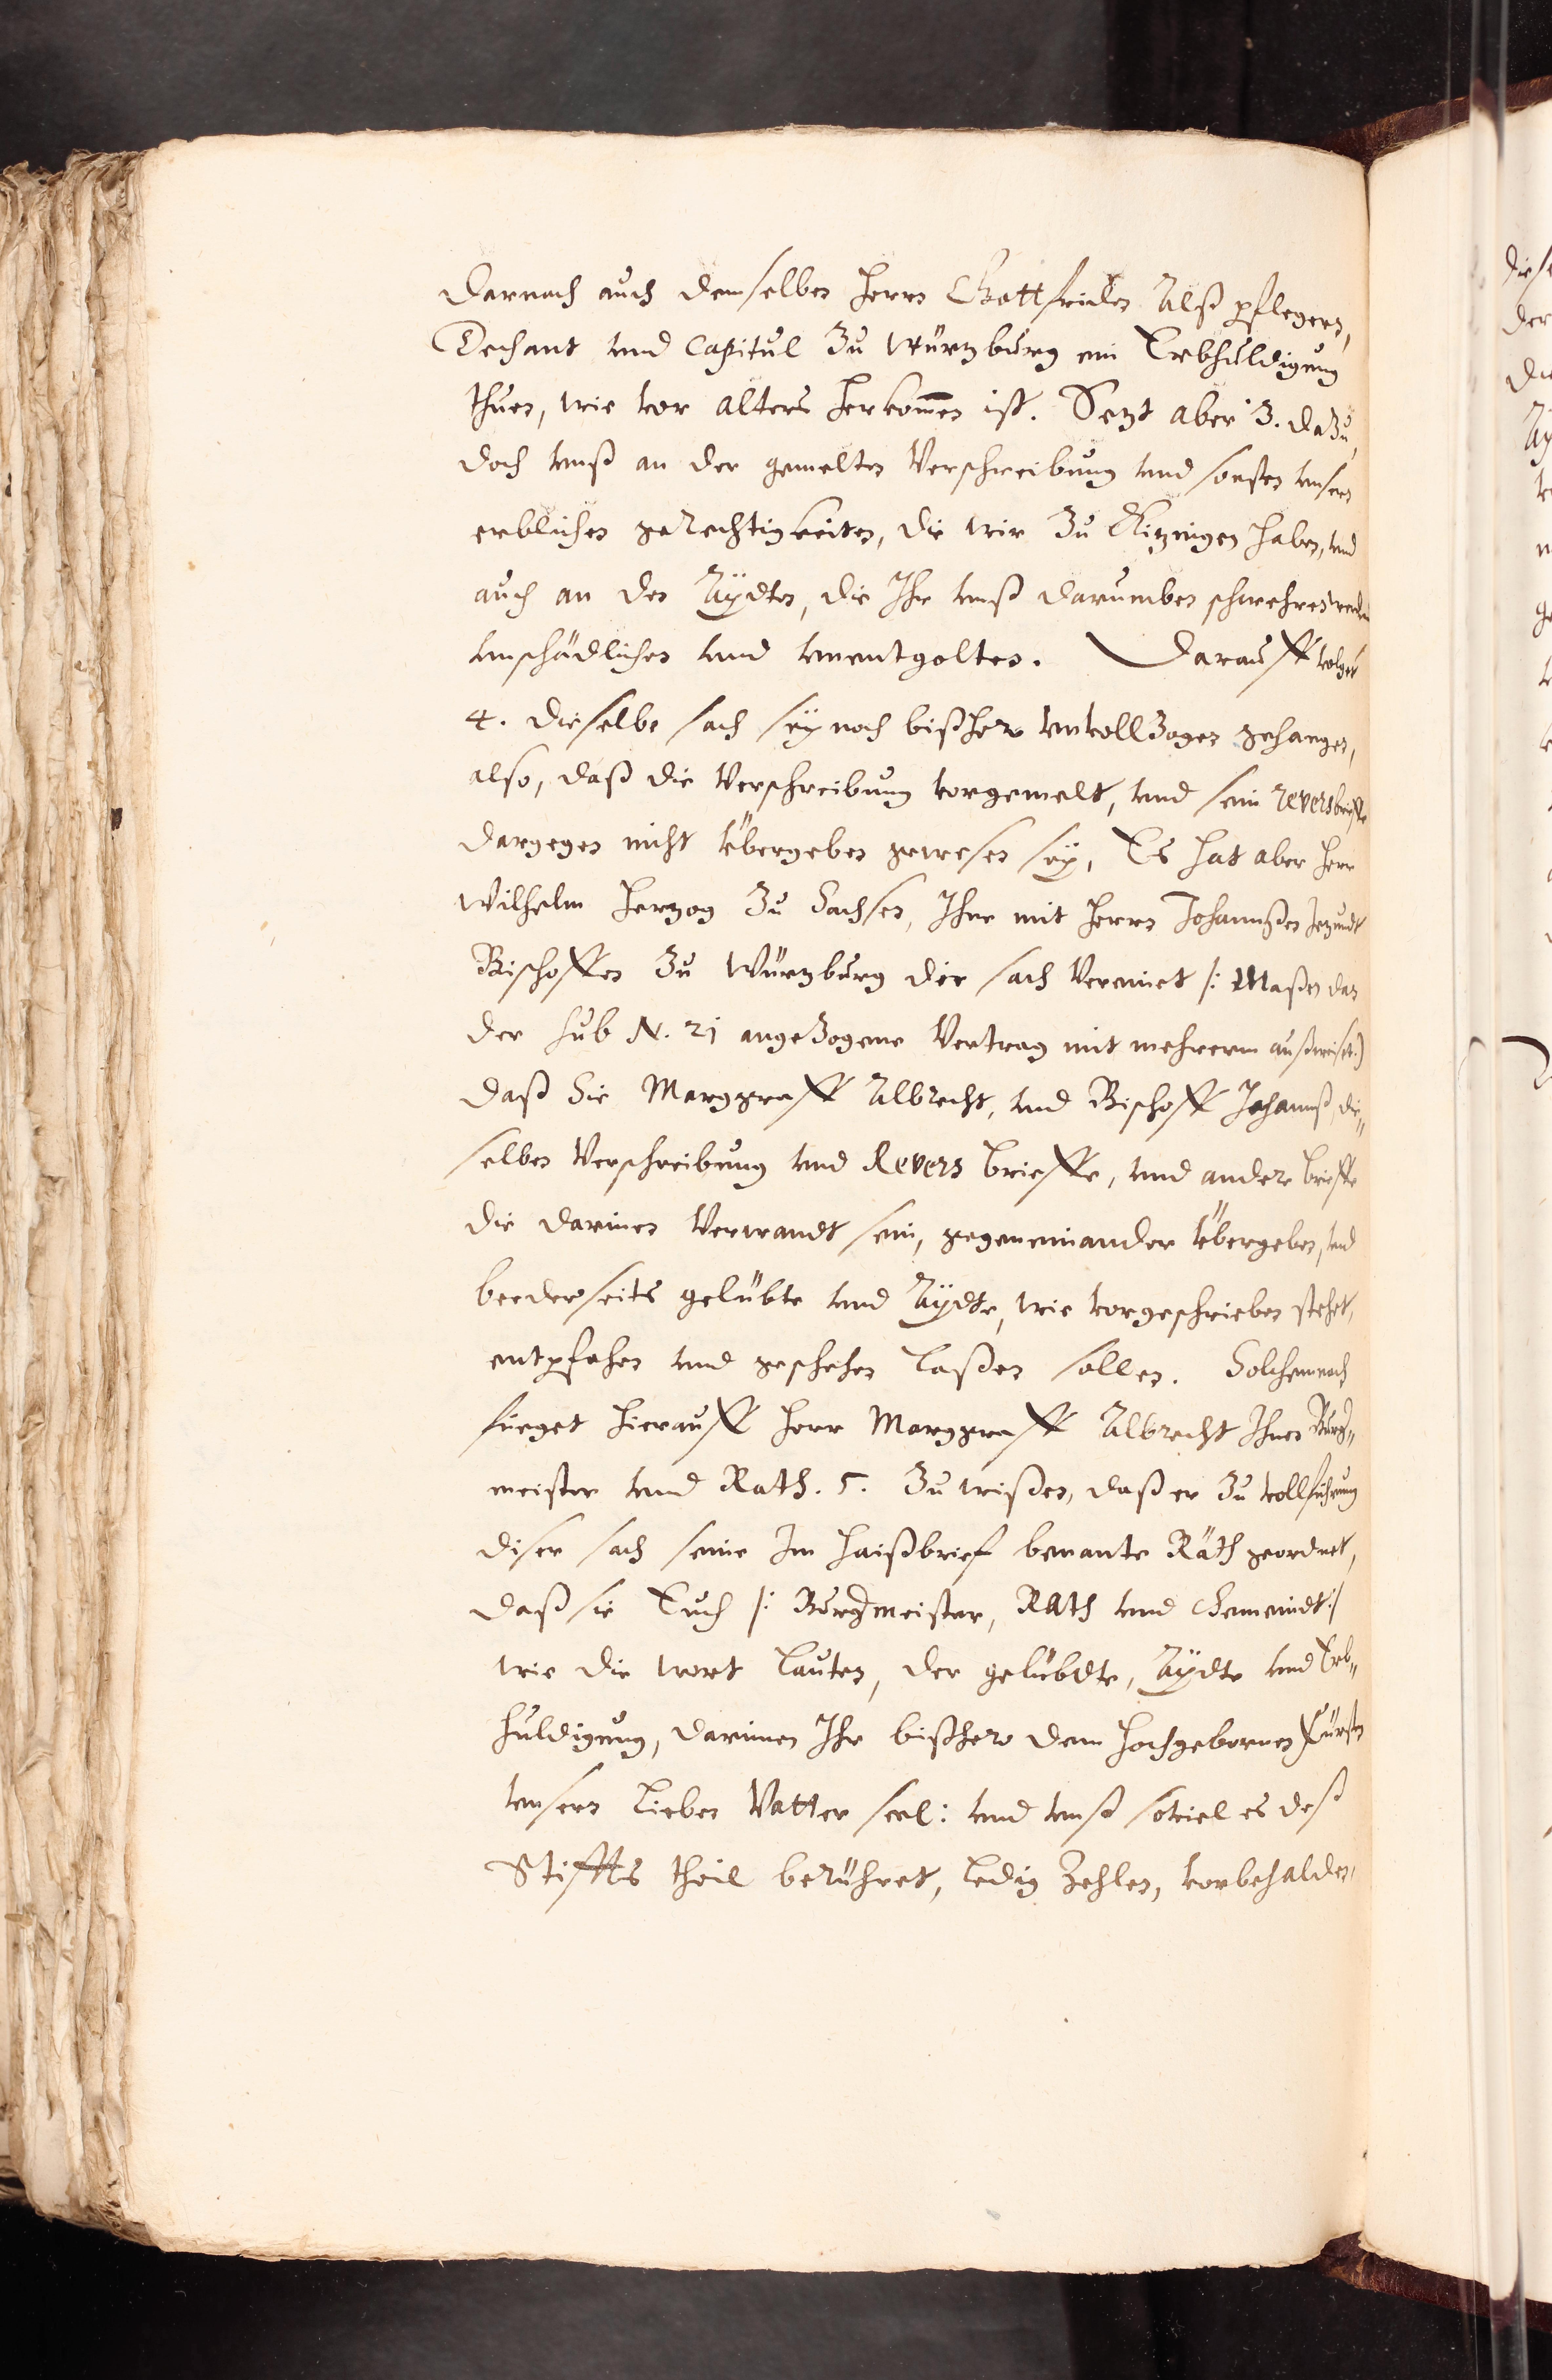 darnach auch demselben Herrn Gottfriden Alß pflegern,
Dechant vnd Capitul Zu Würtzburg ein Erbhuldigung
thuen, wie vor alters herkom̄en ist. Setzt aber 3. dazu,
doch vnß an der gemelten Verschreibung vnd sonsten vnsern
erblichen gerechtigkeiten, die wir Zu Kitzingen haben, vnd
auch an den Aÿdten, die Ihr vnß darumben schwehren werdt
vnschädlichen vnd vnentgolten. Darauff volget
4. dieselbe sach seÿ noch bißhero vnvollzogen gehangen,
also, daß die Verschreibung vorgemelt, vnd sein reversbrieffe
dargegen nicht vbergeben gewesen seÿ, Es hat aber Herr
Wilhelm Hertzog Zu Sachsen, Ihne mit Herrn Johannßen Jetzundt
Bischoffen Zu Würtzburg der sach Vereinet /: Maßen dan
der sub N. 21 angezogene Vertrag mit mehrerm außweiset:)
daß Sie Marggraff Albrecht, vnd Bischoff Johannß, die„
selben Verschreibung vnd Revers brieffe, vnd andere brieffe
die darinen Verwandt sein, gegeneinander vbergeben, vnd
beederseits gelübte vnd Aÿdte, wie vorgeschrieben stehet,
entpfahen vnd geschehen laßen sollen. Solchemnach
füeget hierauff Herr Marggraff Albrecht Ihnen Burg„
meister vnd Rath. 5. Zu wißen, daß er Zu vollführung
diser sach seine Im haißbrief benante Räth geordnet,
daß sie Euch /: Burgmeister, Rath vnd Gemeindt :/
wie die wort lauten, der gelübdte, Aÿdte vnd Erb„
huldigung, darinnen Ihr bißhero dem hochgebornen Fürsten
vnsern lieben Vatter seel: vnd vnß soviel es deß
Stiffts theil berühret, ledig Zehlen, vorbehalden,